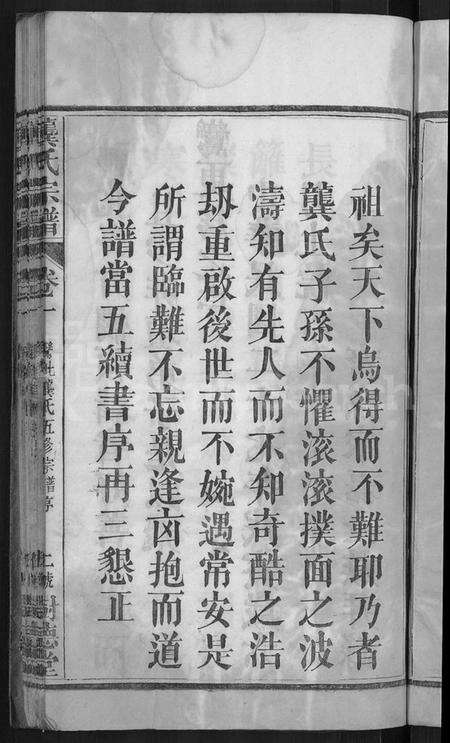 祖矣天下烏得而不難耶乃者
龔氏子孫不懼滚滚撲面之波
濤知有先人而不知奇酷之浩
刼重啟後世而不婉遇常安是
所謂臨難不忘親逢凶抱而道
今譜當五續書序再三懇正
龔氏宗譜
卷一
龔氏五修宗譜序